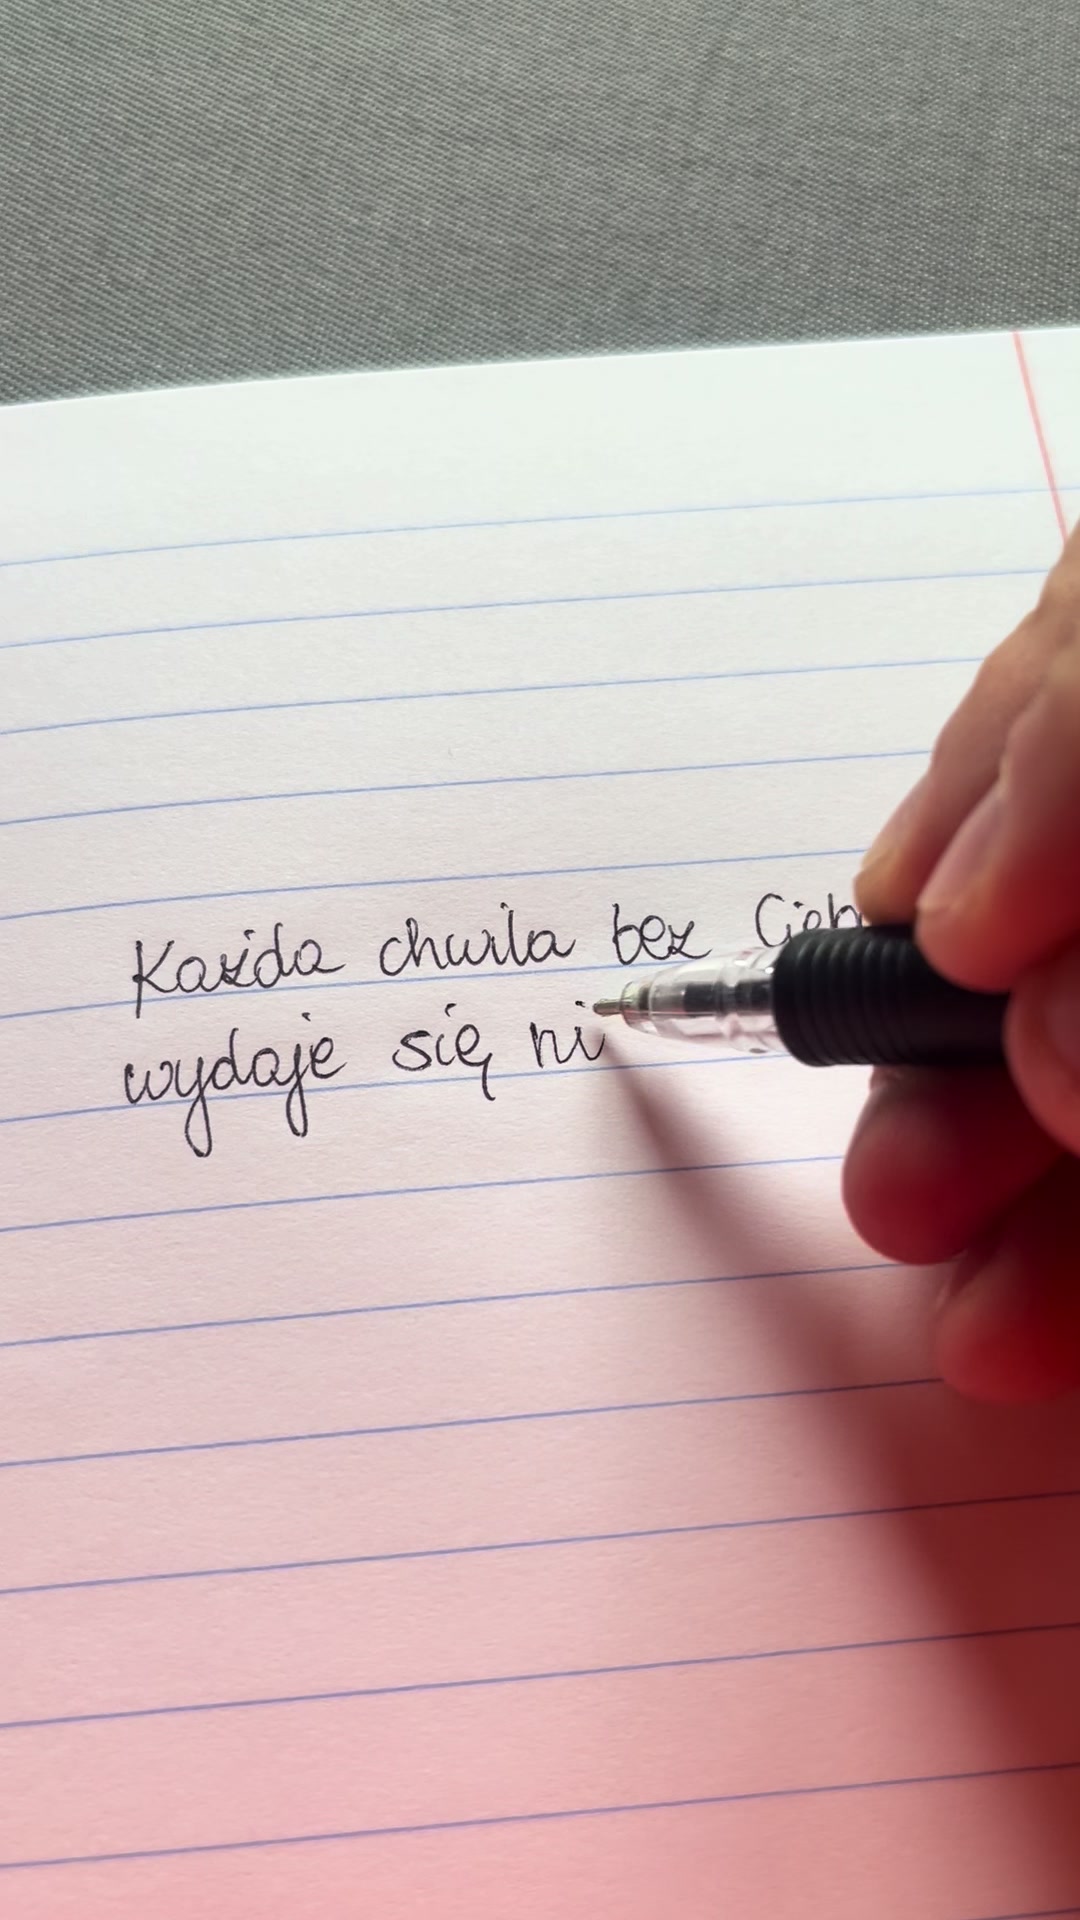 Każda chwila bez
wydaje się ni